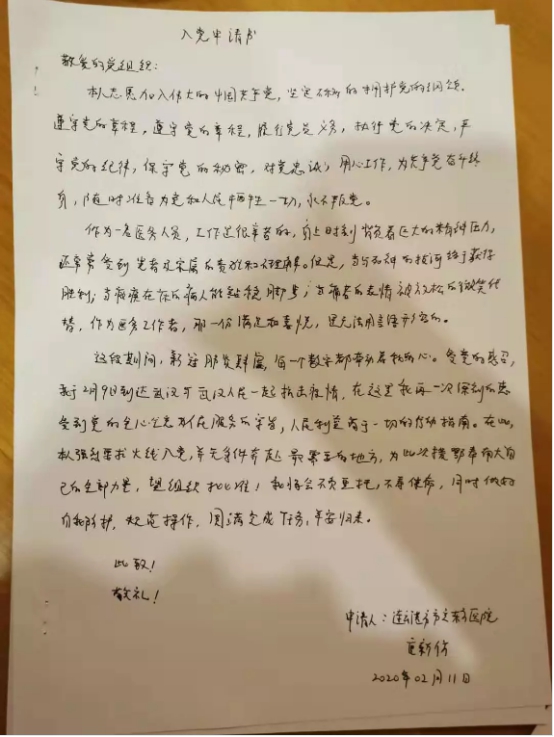 入党申请书
敬爱的党组织：
本人志愿加入伟大的中国共产党，坚定不移的拥护党的纲领，
遵守党的章程，遵守党的章程，履行党员义务，执行党的决定，严
守党的纪律，保守党的秘密，对党忠诚，用心工作，为共产党奋斗终
身，随时准备为党和人民牺牲一切，永不叛党。
作为一名医务人员，工作是很辛苦的，身上时刻背负着巨大的精神压力，
还常常受到患者及家属的责难和不理解。但是，当与死神的拔河终于获得
胜利；当瘫痪在床的病人能站稳脚步；当痛苦的表情被轻松的微笑代
替，作为医务工作者，那一份满足和喜悦，是无法用言语形容的。
这段期间，新冠肺炎肆虐，每一个数字都牵动着我的心。受党的感召，
我于2月9日到达武汉与武汉人民一起抗击疫情，在这里我再一次深刻的感
受到党的全心全意为人民服务的宗旨，人民利益高于一切的行动指南。在此，
本人强烈要求火线入党，并无条件奔赴最需要的地方，为此次援鄂奉献自
己的全部力量，望组织批准！我将会不负重托，不辱使命，同时做好
自我防护，规范操作，圆满完成任务，平安归来。
此致！
敬礼！
申请人：连云港市立东方医院
2020年02月11日